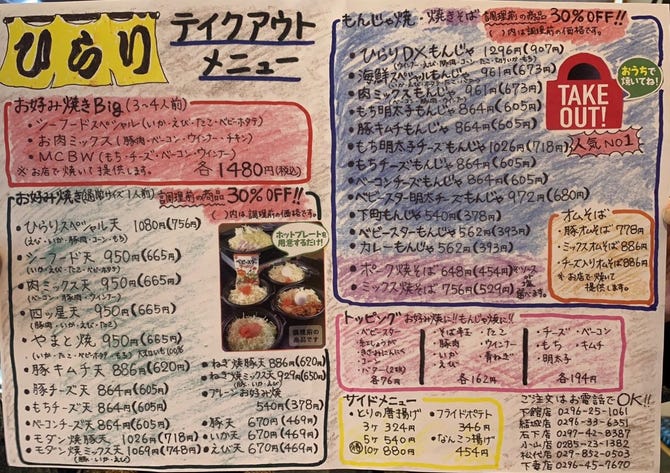 ひらり
テイクアウト
メニュー
お好み焼きBig(3~4人前)
・シーフードスペシャル(いか・えび・たこ・ベビーホタテ)
・お肉ミックス(豚肉・ベーコン・ウインナー・チキン)
・MCBW(もち・チーズ・ベーコン・ウインナー)
※お店で焼いて提供します。 各1480円(税込)
お好み焼き(通常サイズ1人前) 調理前の商品 30%OFF!!
( )内は調理前の価格です。
・ひらりスペシャル天 1080円(756円)
(えび・いか・豚肉・コーン・もち)
・シーフード天 950円(665円)
(いか・えび・たこ・ベビーホタテ)
・肉ミックス天 950円(665円)
(ベーコン・豚肉・ウインナー)
・四ッ星天 950円(665円)
(豚肉・いか・えび・たこ)
・やまと焼 950円(665円)
・豚キムチ天 886円(620円)
・豚チーズ天 864円(605円)
・もちチーズ天 864円(605円)
・ベーコンチーズ天 864円(605円)
・モダン焼豚天 1026円(718円)
・モダン焼ミックス天 1069円(748円)
(豚・いか・えび)
ホットプレートを
用意するだけ!
調理前の
商品です
・ねぎ焼豚天 886円(620円)
・ねぎ焼ミックス天 929円(650円)
(豚・いか・えび)
・プレーンお好み焼
540円(378円)
・豚天 670円(469円)
・いか天 670円(469円)
・えび天 670円(469円)
もんじゃ焼・焼きそば 調理前の商品 30%OFF!!
( )内は調理前の価格です。
・ひらりDXもんじゃ 1296円(907円)
・海鮮スペシャルもんじゃ 961円(673円)
・肉ミックスもんじゃ 961円(673円)
・もち明太子もんじゃ 864円(605円)
・豚キムチもんじゃ 864円(605円)
・もち明太子チーズもんじゃ 1026円(718円) 人気NO1
・もちチーズもんじゃ 864円(605円)
・ベーコンチーズもんじゃ 864円(605円)
・ベビースター明太チーズもんじゃ 972円(680円)
・下町もんじゃ 540円(378円)
・ベビースターもんじゃ 562円(393円)
・カレーもんじゃ 562円(393円)
・ポーク焼そば 648円(454円)
・ミックス焼そば 756円(529円)
おうちで
焼いてね!
TAKE
OUT!
オムそば
・豚オムそば 778円
・ミックスオムそば 886円
・チーズ入りオムそば 886円
※お店で焼いて
提供します。
トッピング お好み焼に!!もんじゃ焼に!!
・ベビースター
・紅しょうが
・きざみにんにく
・コーン
・バター(2個)
各76円
・そば半玉・たこ
・豚肉・ウインナー
・いか・青ねぎ
・えび
各162円
・チーズ・ベーコン
・もち・キムチ
・明太子
各194円
サイドメニュー
・とりの唐揚げ
3ヶ 324円
5ヶ 540円
10ヶ 880円
・フライドポテト
346円
・なんこつ揚げ
454円
ご注文はお電話でOK!!
下館店 0296-25-1061
結城店 0296-33-6351
石下店 0297-42-8387
小山店 0285-23-1382
松代店 029-852-0503
下妻店 0296-45-7676